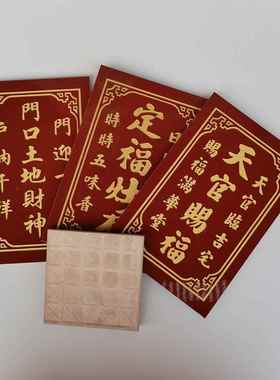 天官臨吉宅
天官賜福
賜福滿華堂
日
定福灶
時時五味香
門迎一
門口土地財神
納千祥